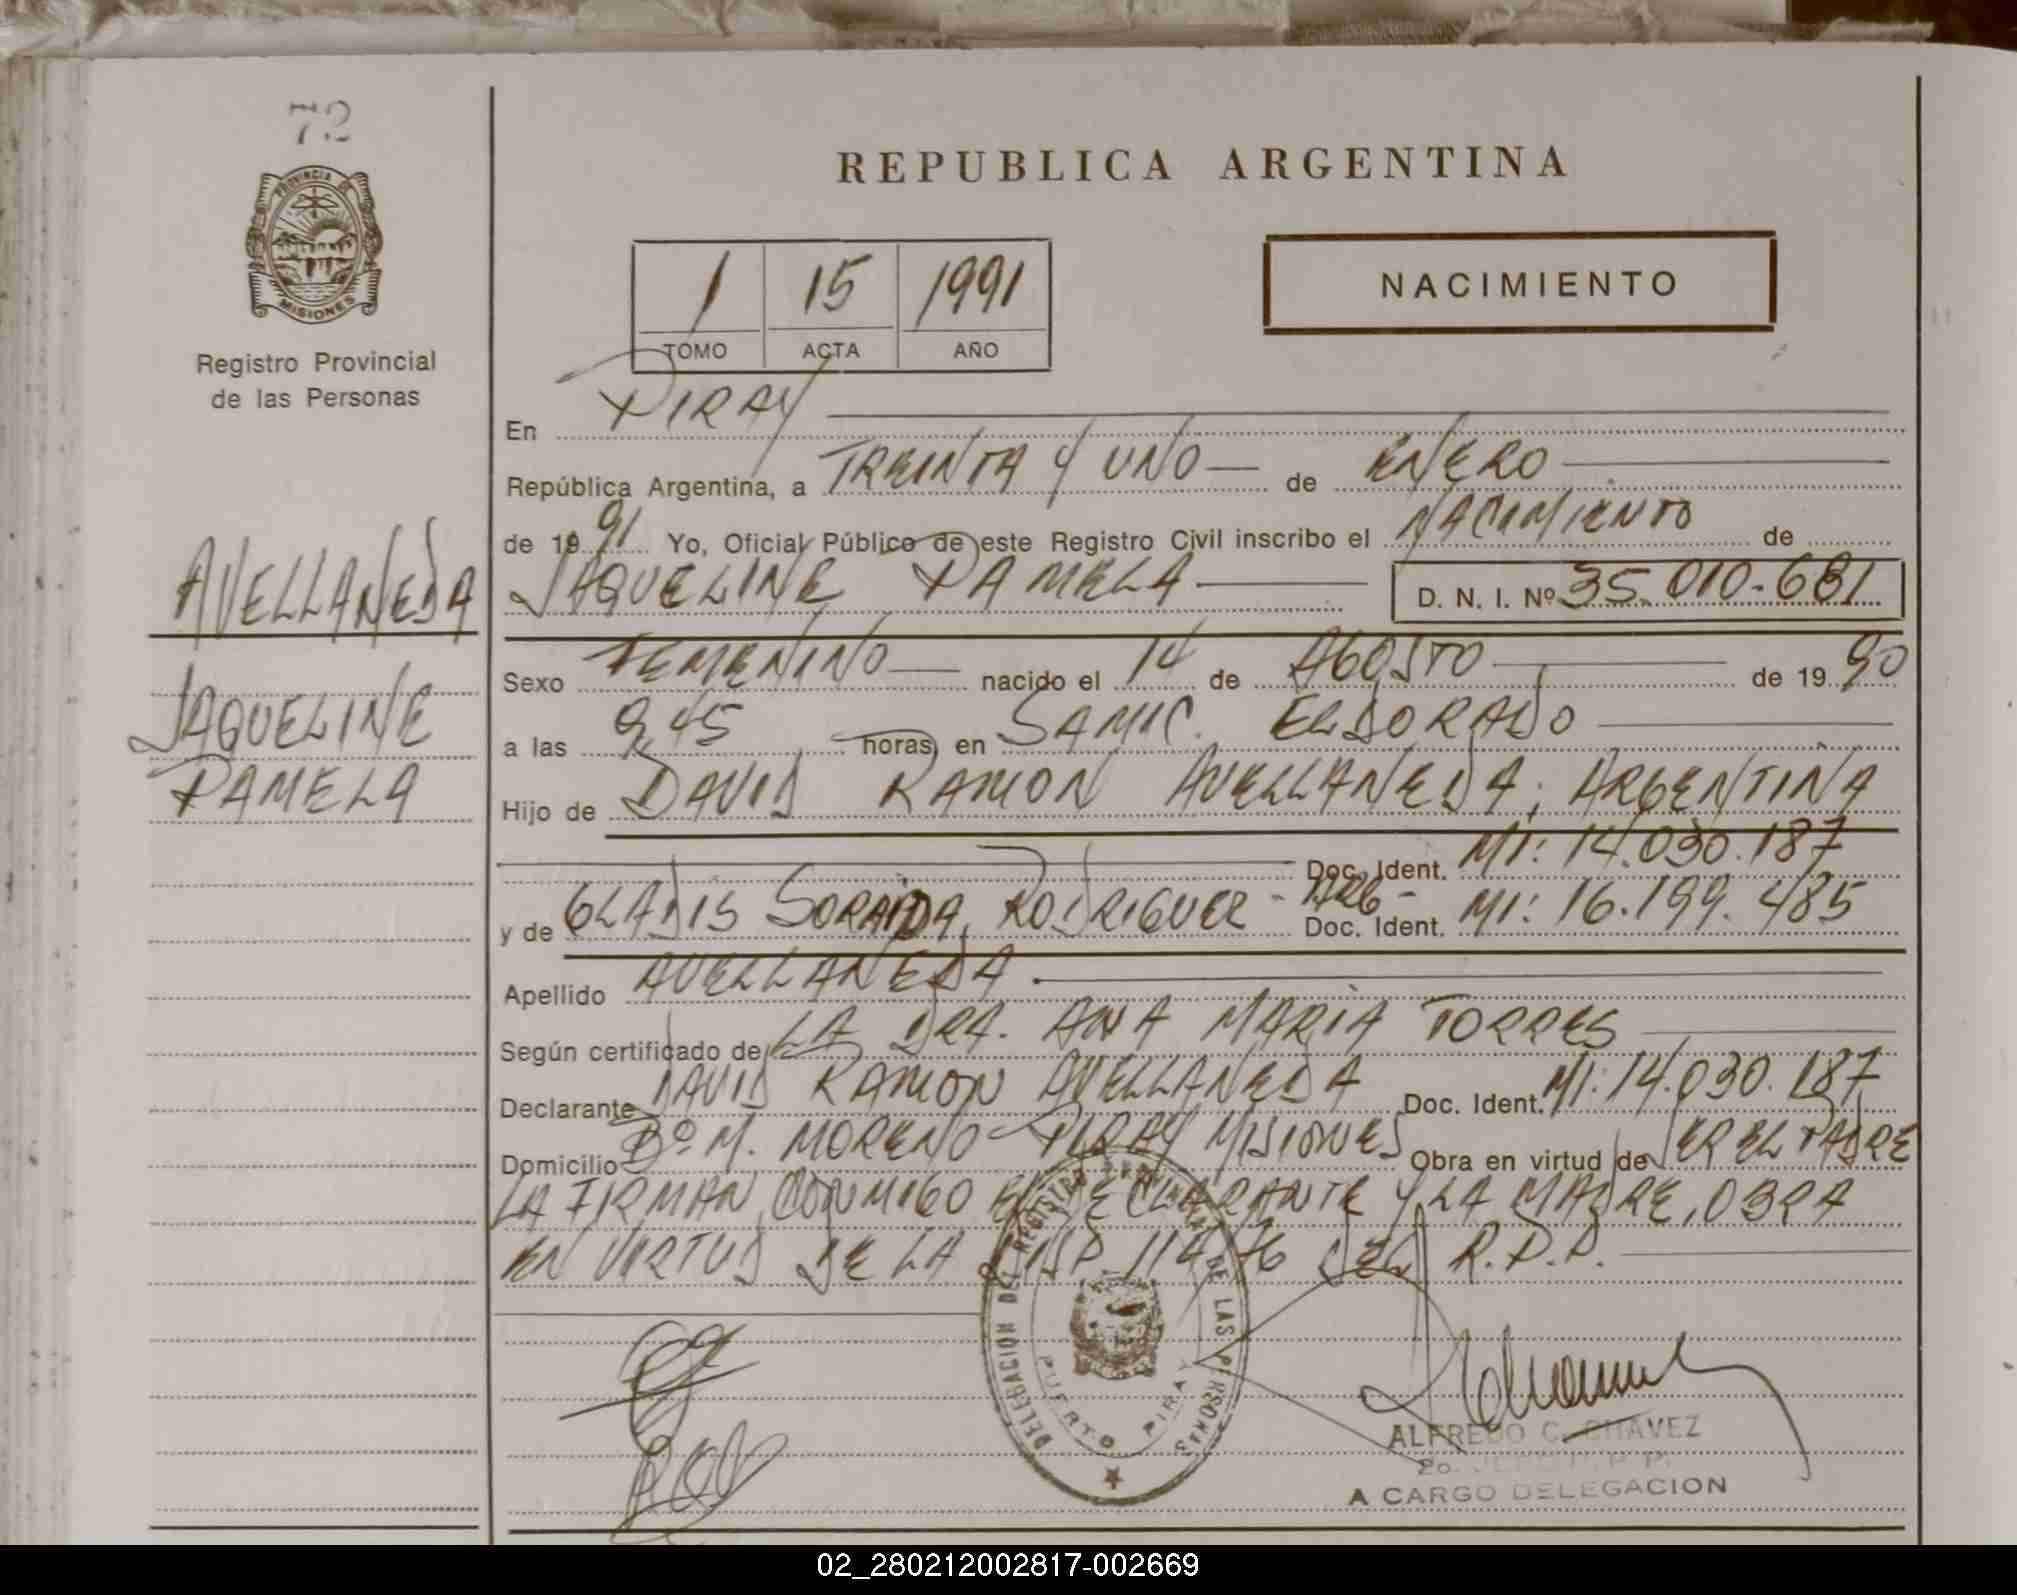 72
PROVINCIA DE
MISIONES
Registro Provincial
de las Personas
REPUBLICA ARGENTINA
1 15 1991
TOMO ACTA AÑO
NACIMIENTO
En PIRAY
República Argentina, a TREINTA Y UNO de ENERO
de 1991 Yo, Oficial Público de este Registro Civil inscribo el NACIMIENTO de
JAQUELINE PAMELA D. N. I. Nº 35.010.681
AVELLANEDA
JAQUELINE
PAMELA
Sexo FEMENINO nacido el 14 de AGOSTO de 1990
a las 9,45 horas, en SAMIC. ELDORADO
Hijo de DAVID RAMON AVELLANEDA; ARGENTINA
Doc. Ident. MI: 14.030.187
y de GLADIS SORAIDA RODRIGUEZ - ARG - Doc. Ident. MI: 16.199.485
Apellido AVELLANEDA
Según certificado de LA DRA. ANA MARIA TORRES
Declarante DAVID RAMON AVELLANEDA Doc. Ident. MI: 14.030.187
Domicilio Bº M. MORENO - PIRAY MISIONES Obra en virtud de SER EL PADRE
LA FIRMAN CONMIGO EL DECLARANTE Y LA MADRE, OBRA
EN VIRTUD DE LA DISP. 114/76 DEL R.P.P.
DELEGACION DEL REGISTRO PROVINCIAL DE LAS PERSONAS
PUERTO PIRAY
ALFREDO C. CHAVEZ
A CARGO DELEGACION
02_280212002817-002669